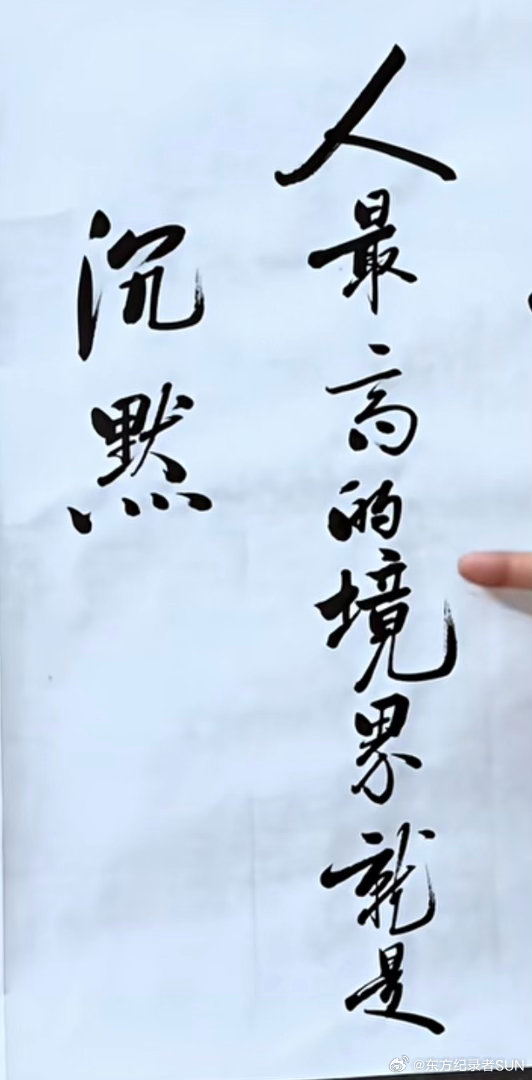 人最高的境界就是
沉默
@东方纪录者SUN